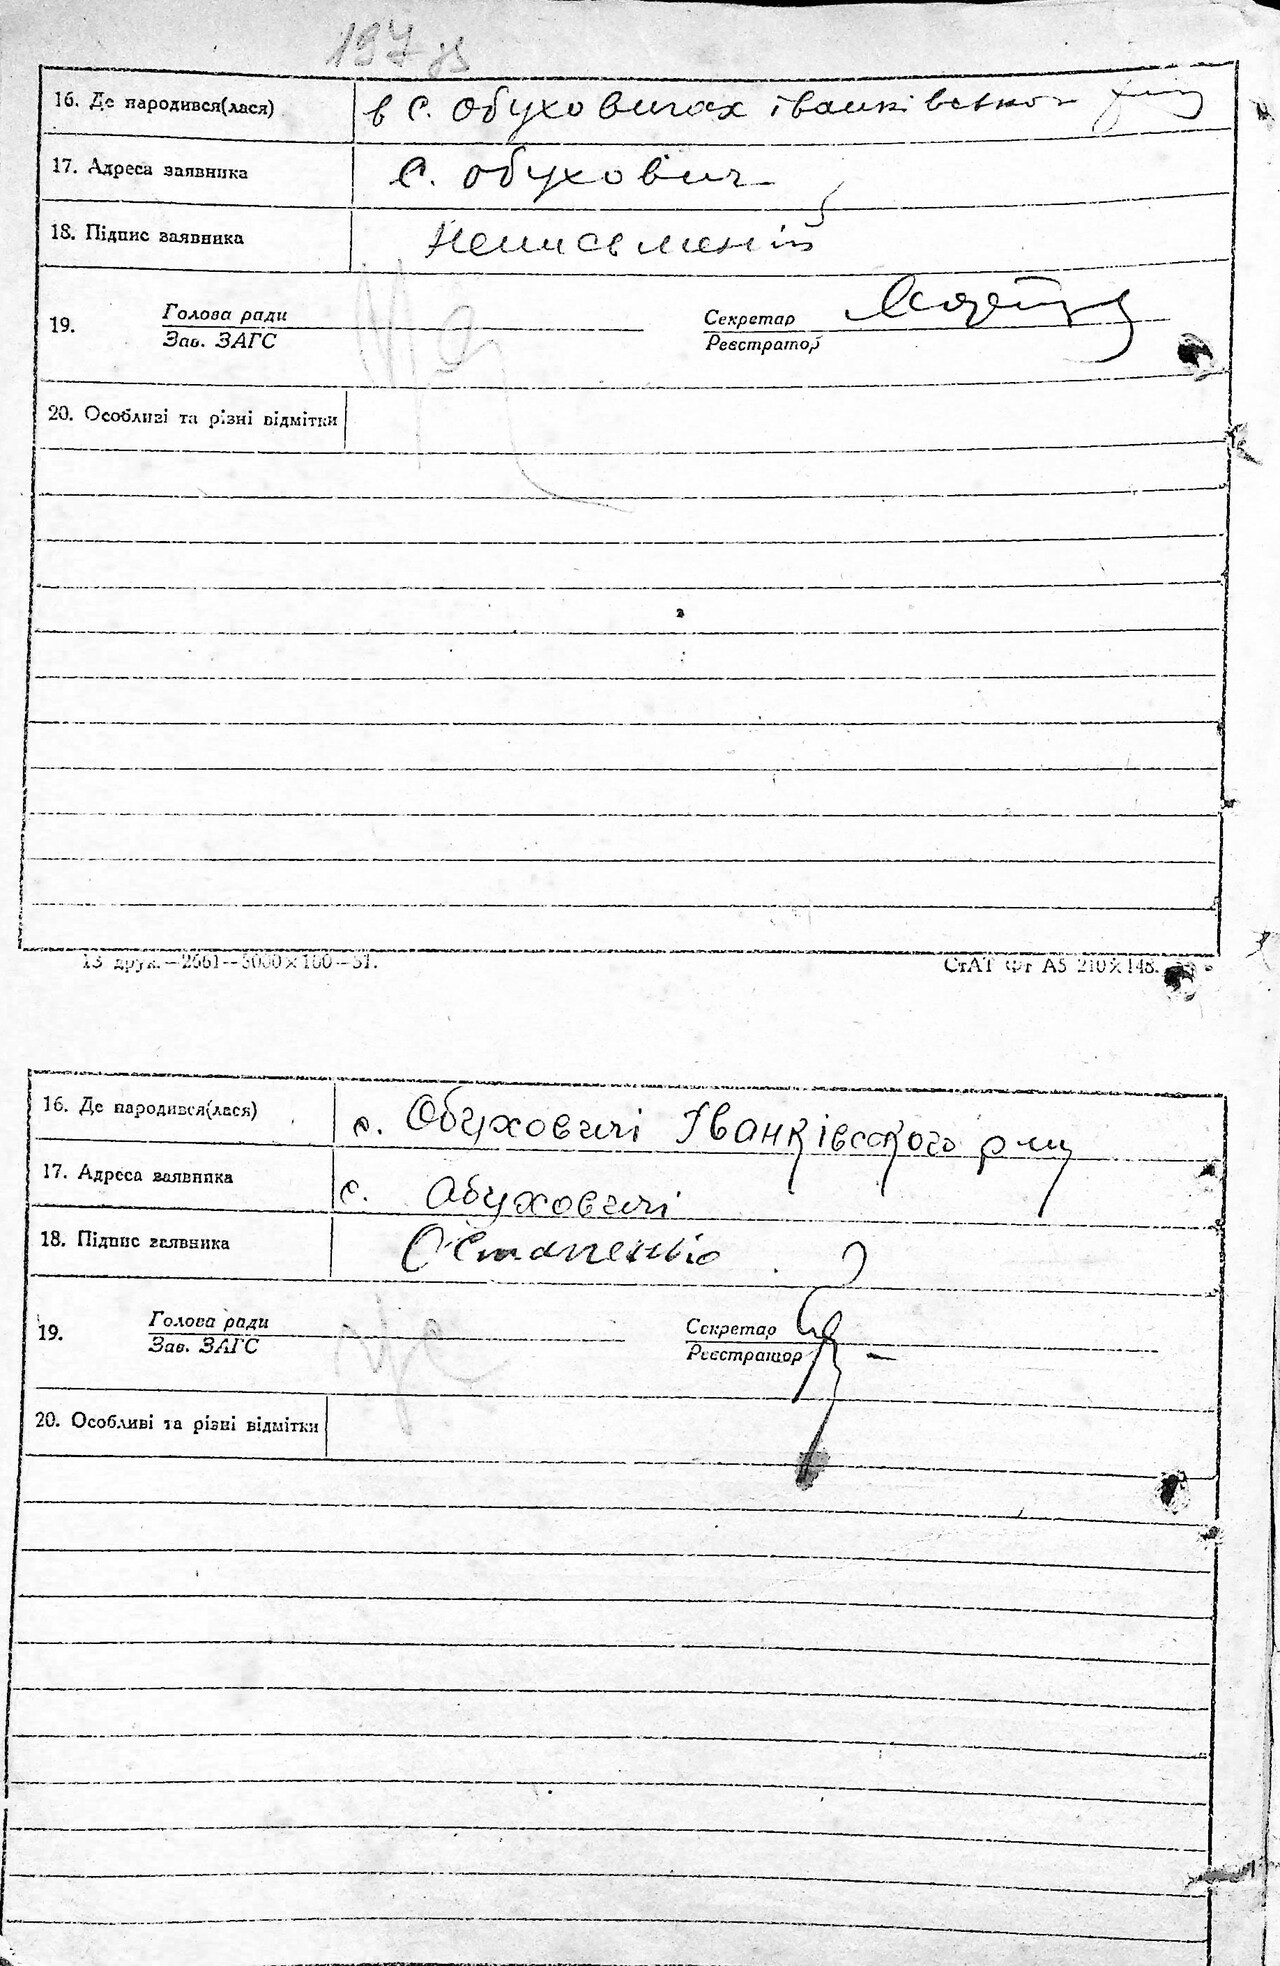 197 зв
16. Де народився(лася) в с. Обуховичах іванківського р-ну
17. Адреса заявника с. Обухович
18. Підпис заявника Неписьменій
19. Голова ради Секретар
Зав. ЗАГС Реєстратор
20. Особливі та різні відмітки
13 друк.—2661—5000×100—51. СтАТ Фт А5 210×148.
16. Де народився(лася) с. Обуховичі Іванківського р-ну
17. Адреса заявника с. Обуховичі
18. Підпис заявника
19. Голова ради Секретар
Зав. ЗАГС Реєстратор
20. Особливі та різні відмітки